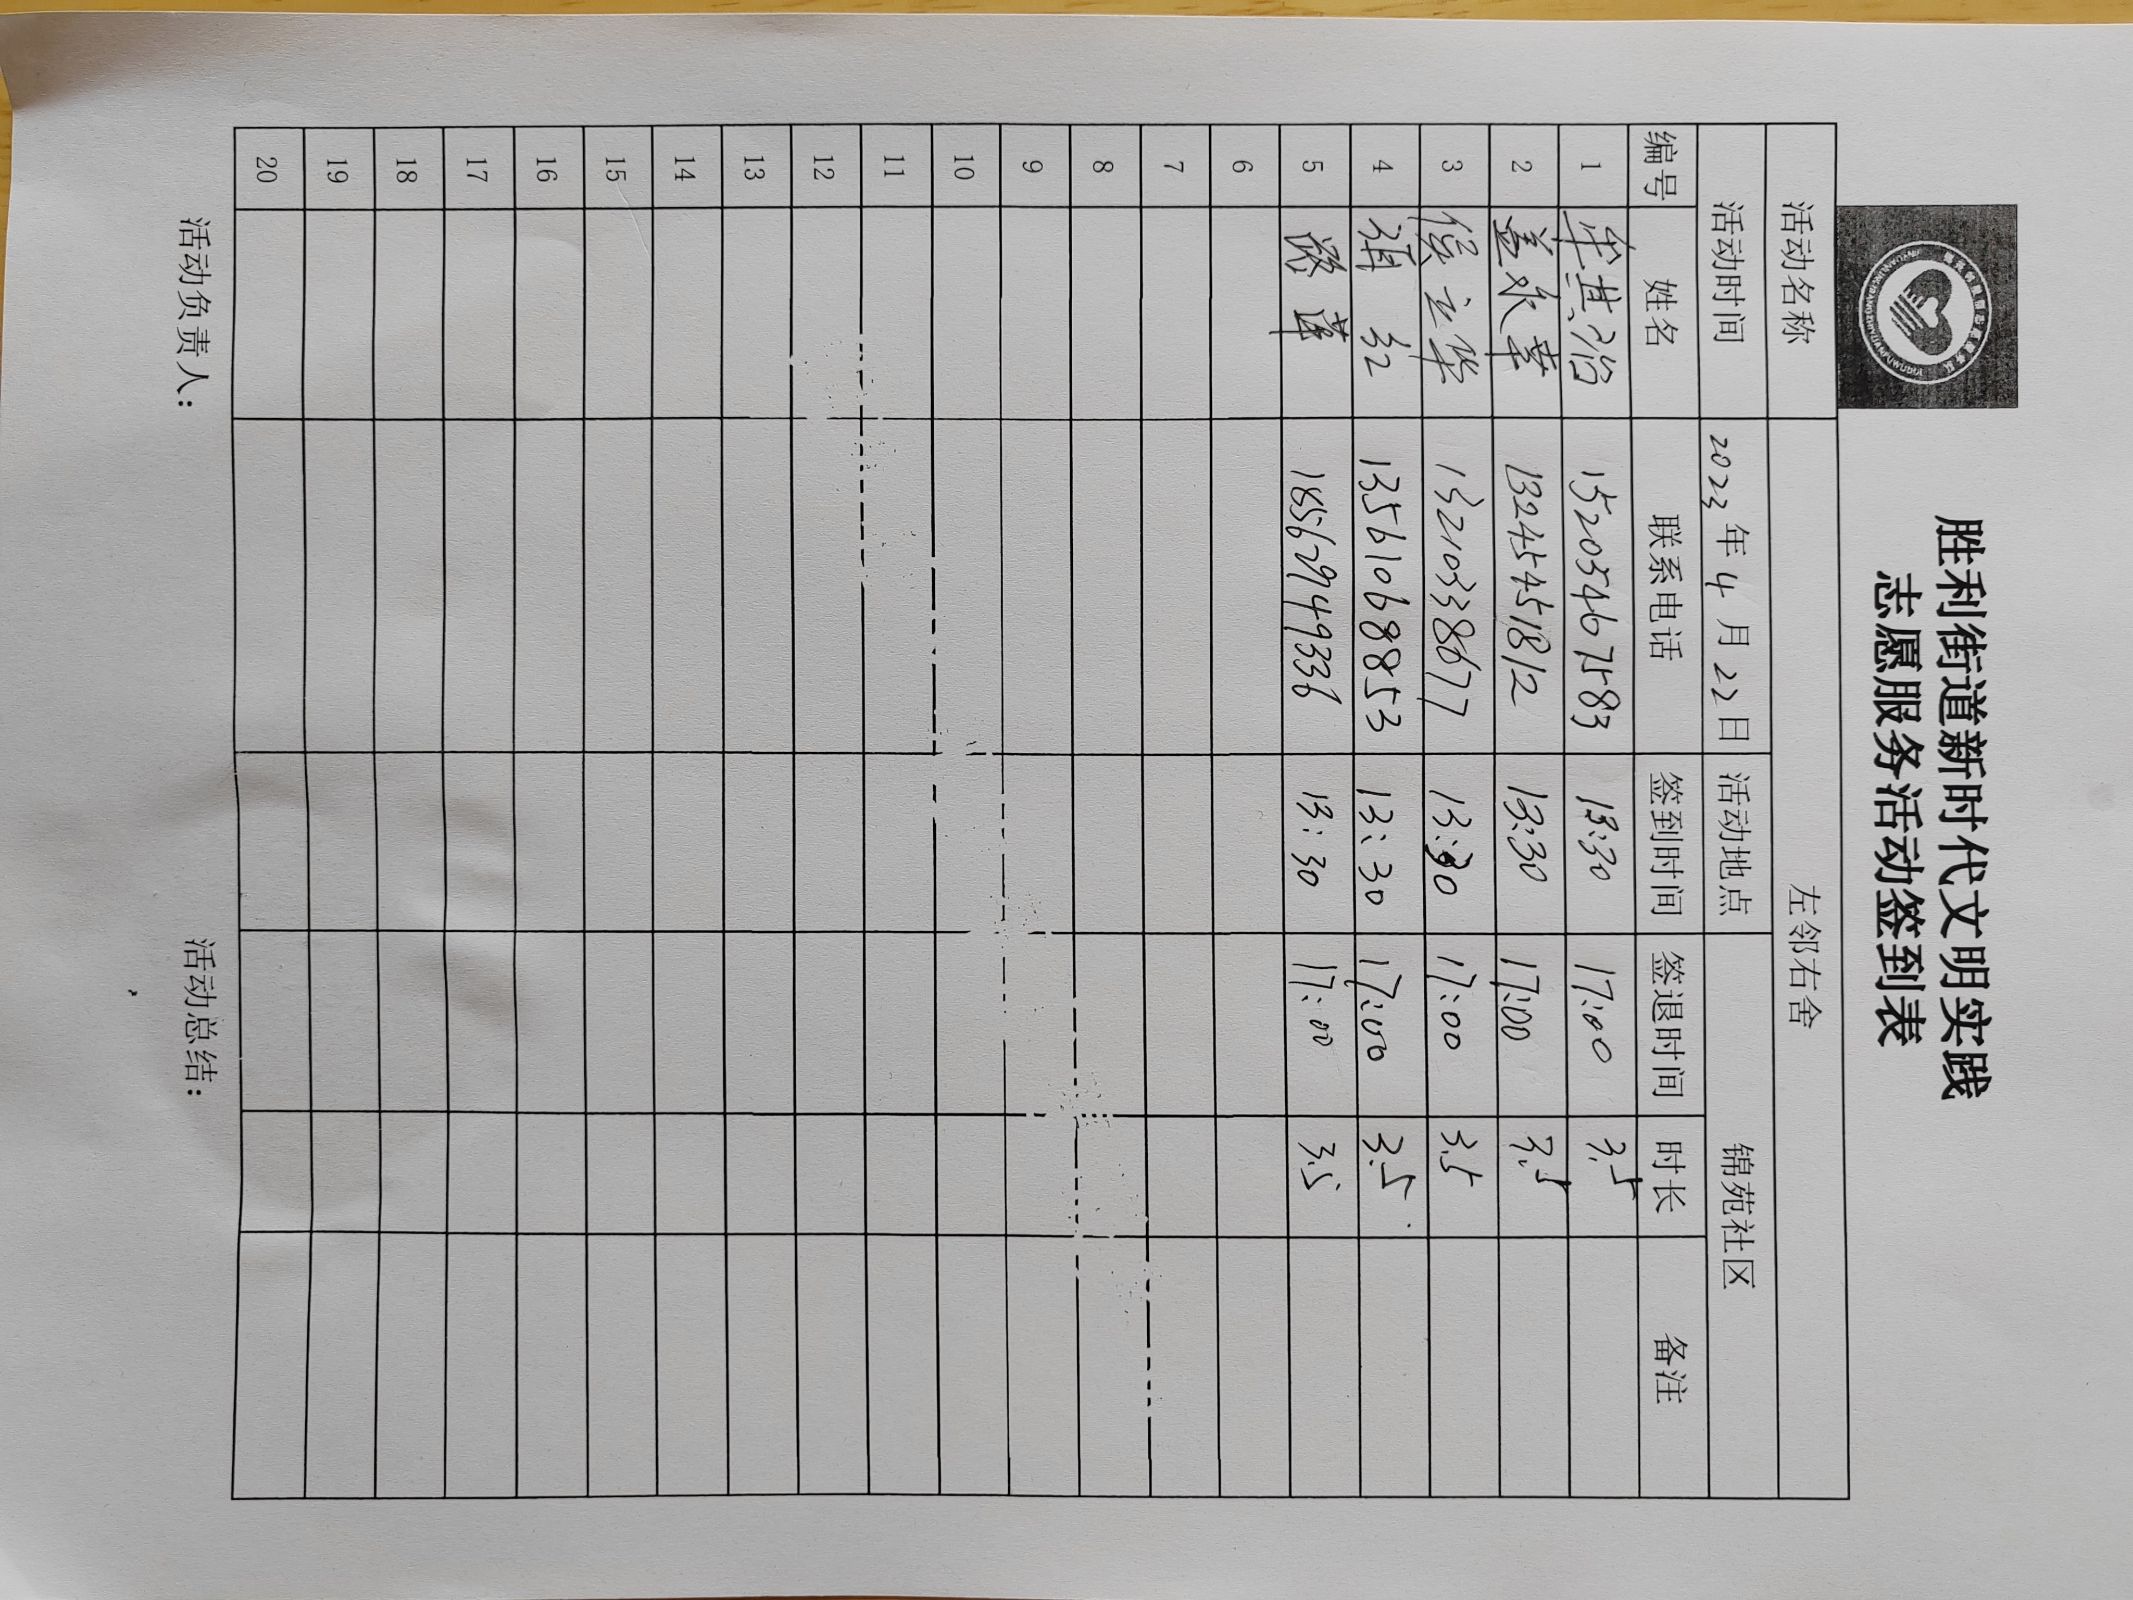 胜利街道新时代文明实践
志愿服务活动签到表
活动名称 左邻右舍
活动时间 2023年4月22日 活动地点 锦苑社区
编号 姓名 联系电话 签到时间 签退时间 时长 备注
1 牟其治 15203467583 13:30 17:00 3.5
2 盖永苹 13245451812 13:30 17:00 3.5
3 侯立华 13210338677 13:30 17:00 3.5
4 13561068853 13:30 17:00 3.5
5 路莲 18562949336 13:30 17:00 3.5
6
7
8
9
10
11
12
13
14
15
16
17
18
19
20
活动负责人： 活动总结：